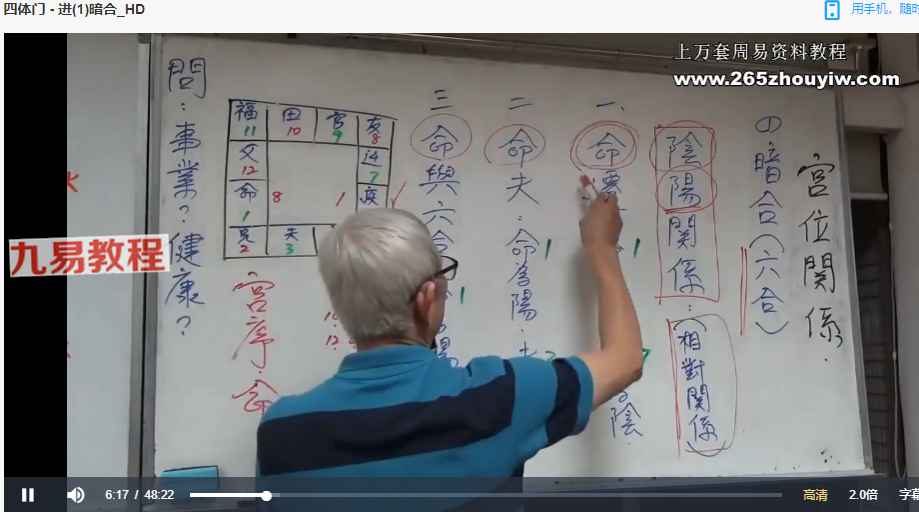 四体门 - 进(1)暗合_HD
用手机，随时
上万套周易资料教程
www.265zhouyiw.com
九易教程
宮位關係.
の暗合(六合)
陰陽關係:(相對關係)
一、命
1
陰.
二 命夫:命為陽
1
三 命與六合
1
陽
福 田 官 友
11 10 9 8
父 迁
12 7
命 8 1 疾
1
兄 夫
2 3
宮序.命
問:事業?健康?
6:17 / 48:22
高清
2.0倍
字幕